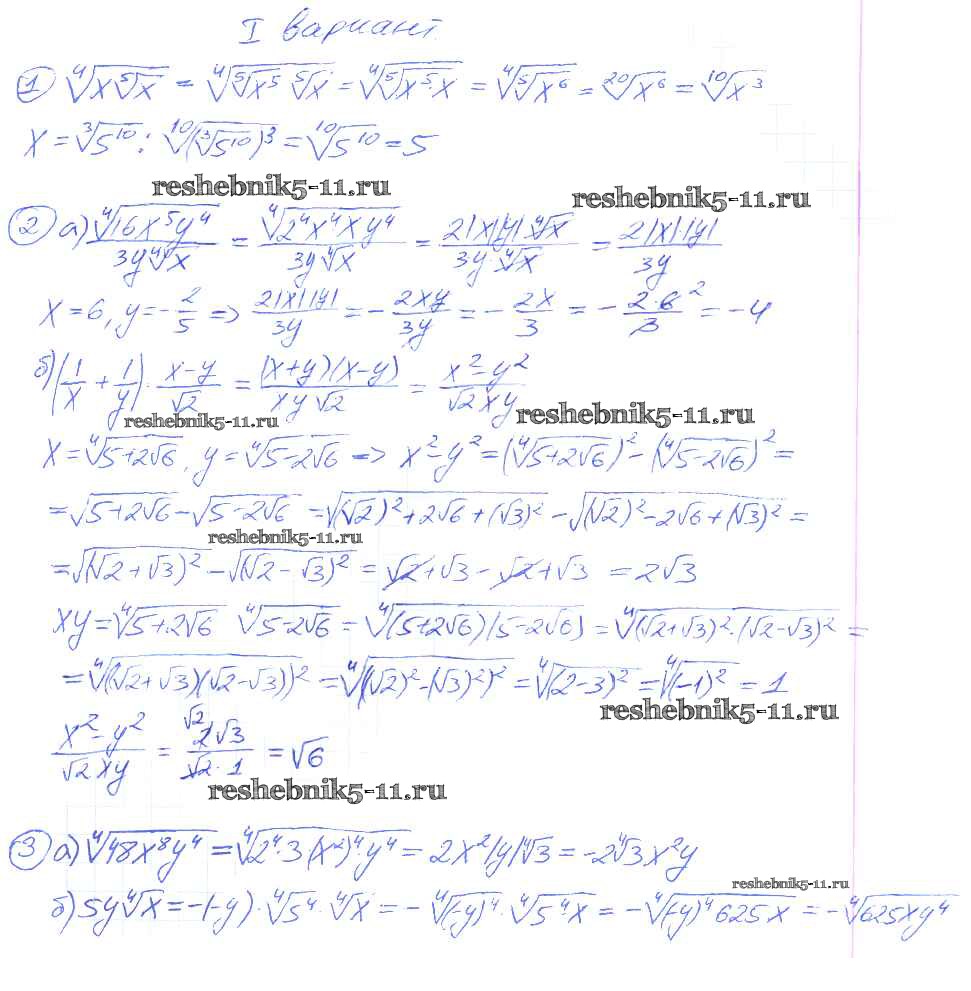 I вариант.
① ⁴√(x⁵√x) = ⁴√(⁵√x⁵ ⁵√x) = ⁴√(⁵√(x⁵·x)) = ⁴√(⁵√x⁶) = ²⁰√x⁶ = ¹⁰√x³
x = ³√5¹⁰ : ¹⁰√(³√5¹⁰)³ = ¹⁰√5¹⁰ = 5
reshebnik5-11.ru
reshebnik5-11.ru
② а) ⁴√(16x⁵y⁴) / (3y⁴√x) = ⁴√(2⁴x⁴xy⁴) / (3y⁴√x) = 2|x||y|·⁴√x / (3y·⁴√x) = 2|x|·|y| / 3y
x = 6, y = -2/5 => 2|x||y| / 3y = -2xy/3y = -2x/3 = -2·6²/3 = -4
б) (1/x + 1/y)·(x-y)/√2 = (x+y)(x-y) / (xy√2) = (x²-y²) / (√2xy)
reshebnik5-11.ru
reshebnik5-11.ru
x = ⁴√(5+2√6), y = ⁴√(5-2√6) => x²-y² = (⁴√(5+2√6))² - (⁴√(5-2√6))² =
= √(5+2√6) - √(5-2√6) = √((√2)²+2√6+(√3)²) - √((√2)²-2√6+(√3)²) =
reshebnik5-11.ru
= √((√2+√3)²) - √((√2-√3)²) = √2+√3-√2+√3 = 2√3
xy = ⁴√(5+2√6) ⁴√(5-2√6) = ⁴√((5+2√6)(5-2√6)) = ⁴√((√2+√3)²·(√2-√3)²) =
= ⁴√(((√2+√3)(√2-√3))²) = ⁴√(((√2)²-(√3)²)²) = ⁴√((2-3)²) = ⁴√((-1)²) = 1
reshebnik5-11.ru
(x²-y²) / (√2xy) = √2 2√3 / (√2·1) = √6
reshebnik5-11.ru
③ а) ⁴√(48x⁸y⁴) = ⁴√(2⁴·3·(x²)⁴·y⁴) = 2x²|y|⁴√3 = -2⁴√3x²y
reshebnik5-11.ru
б) 5y⁴√x = -(-y)·⁴√5⁴·⁴√x = -⁴√((-y)⁴)·⁴√(5⁴x) = -⁴√((-y)⁴625x) = -⁴√(625xy⁴)